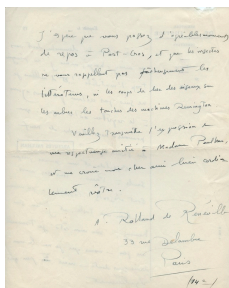 J'espère que vous passez d'agréables moments
de repos à Port-Cros, et que les insectes
ne vous rappellent pas fâcheusement les
littérateurs, ni les coups de bec des oiseaux sur
les arbres les touches des machines Remington
Veuillez transmettre l'expression de
ma respectueuse amitié à Madame Paulhan,
et me croire mon cher ami bien cordia
lement vôtre.
A. Rolland de Renéville
33 rue Delambre
Paris
(14e)